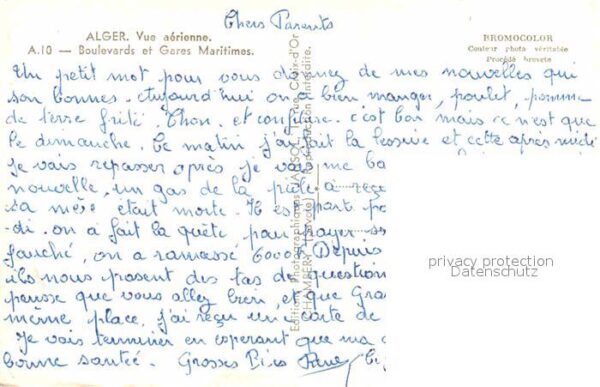 Chers Parents
ALGER. Vue aérienne.
A.10 — Boulevards et Gares Maritimes.
BROMOCOLOR
Couleur photo véritable
Procédé breveté
Un petit mot pour vous donnez de mes nouvelles qui
son bonnes. Aujourd'hui on a bien manger, poulet, pomme
de terre frité. Thon. et confiture. c'est bon mais ce n'est que
le dimanche. Ce matin j'ai fait la lessive et cette après midi
Je vais repasser après je vais me
nouvelle, un gas de la a reçu
sa mère était morte. Il est part
di. on a fait la quête pour payer
fauché, on a ramassé 6000 Depuis
ils nous posent des tas de question
pense que vous allez bien, et que
même place, j'ai reçu un carte de
Je vais terminer en esperant que ma
bonne santée. Grosses
Editions Photographiques
CHAMBERY
Reproduction Interdite.
privacy protection
Datenschutz